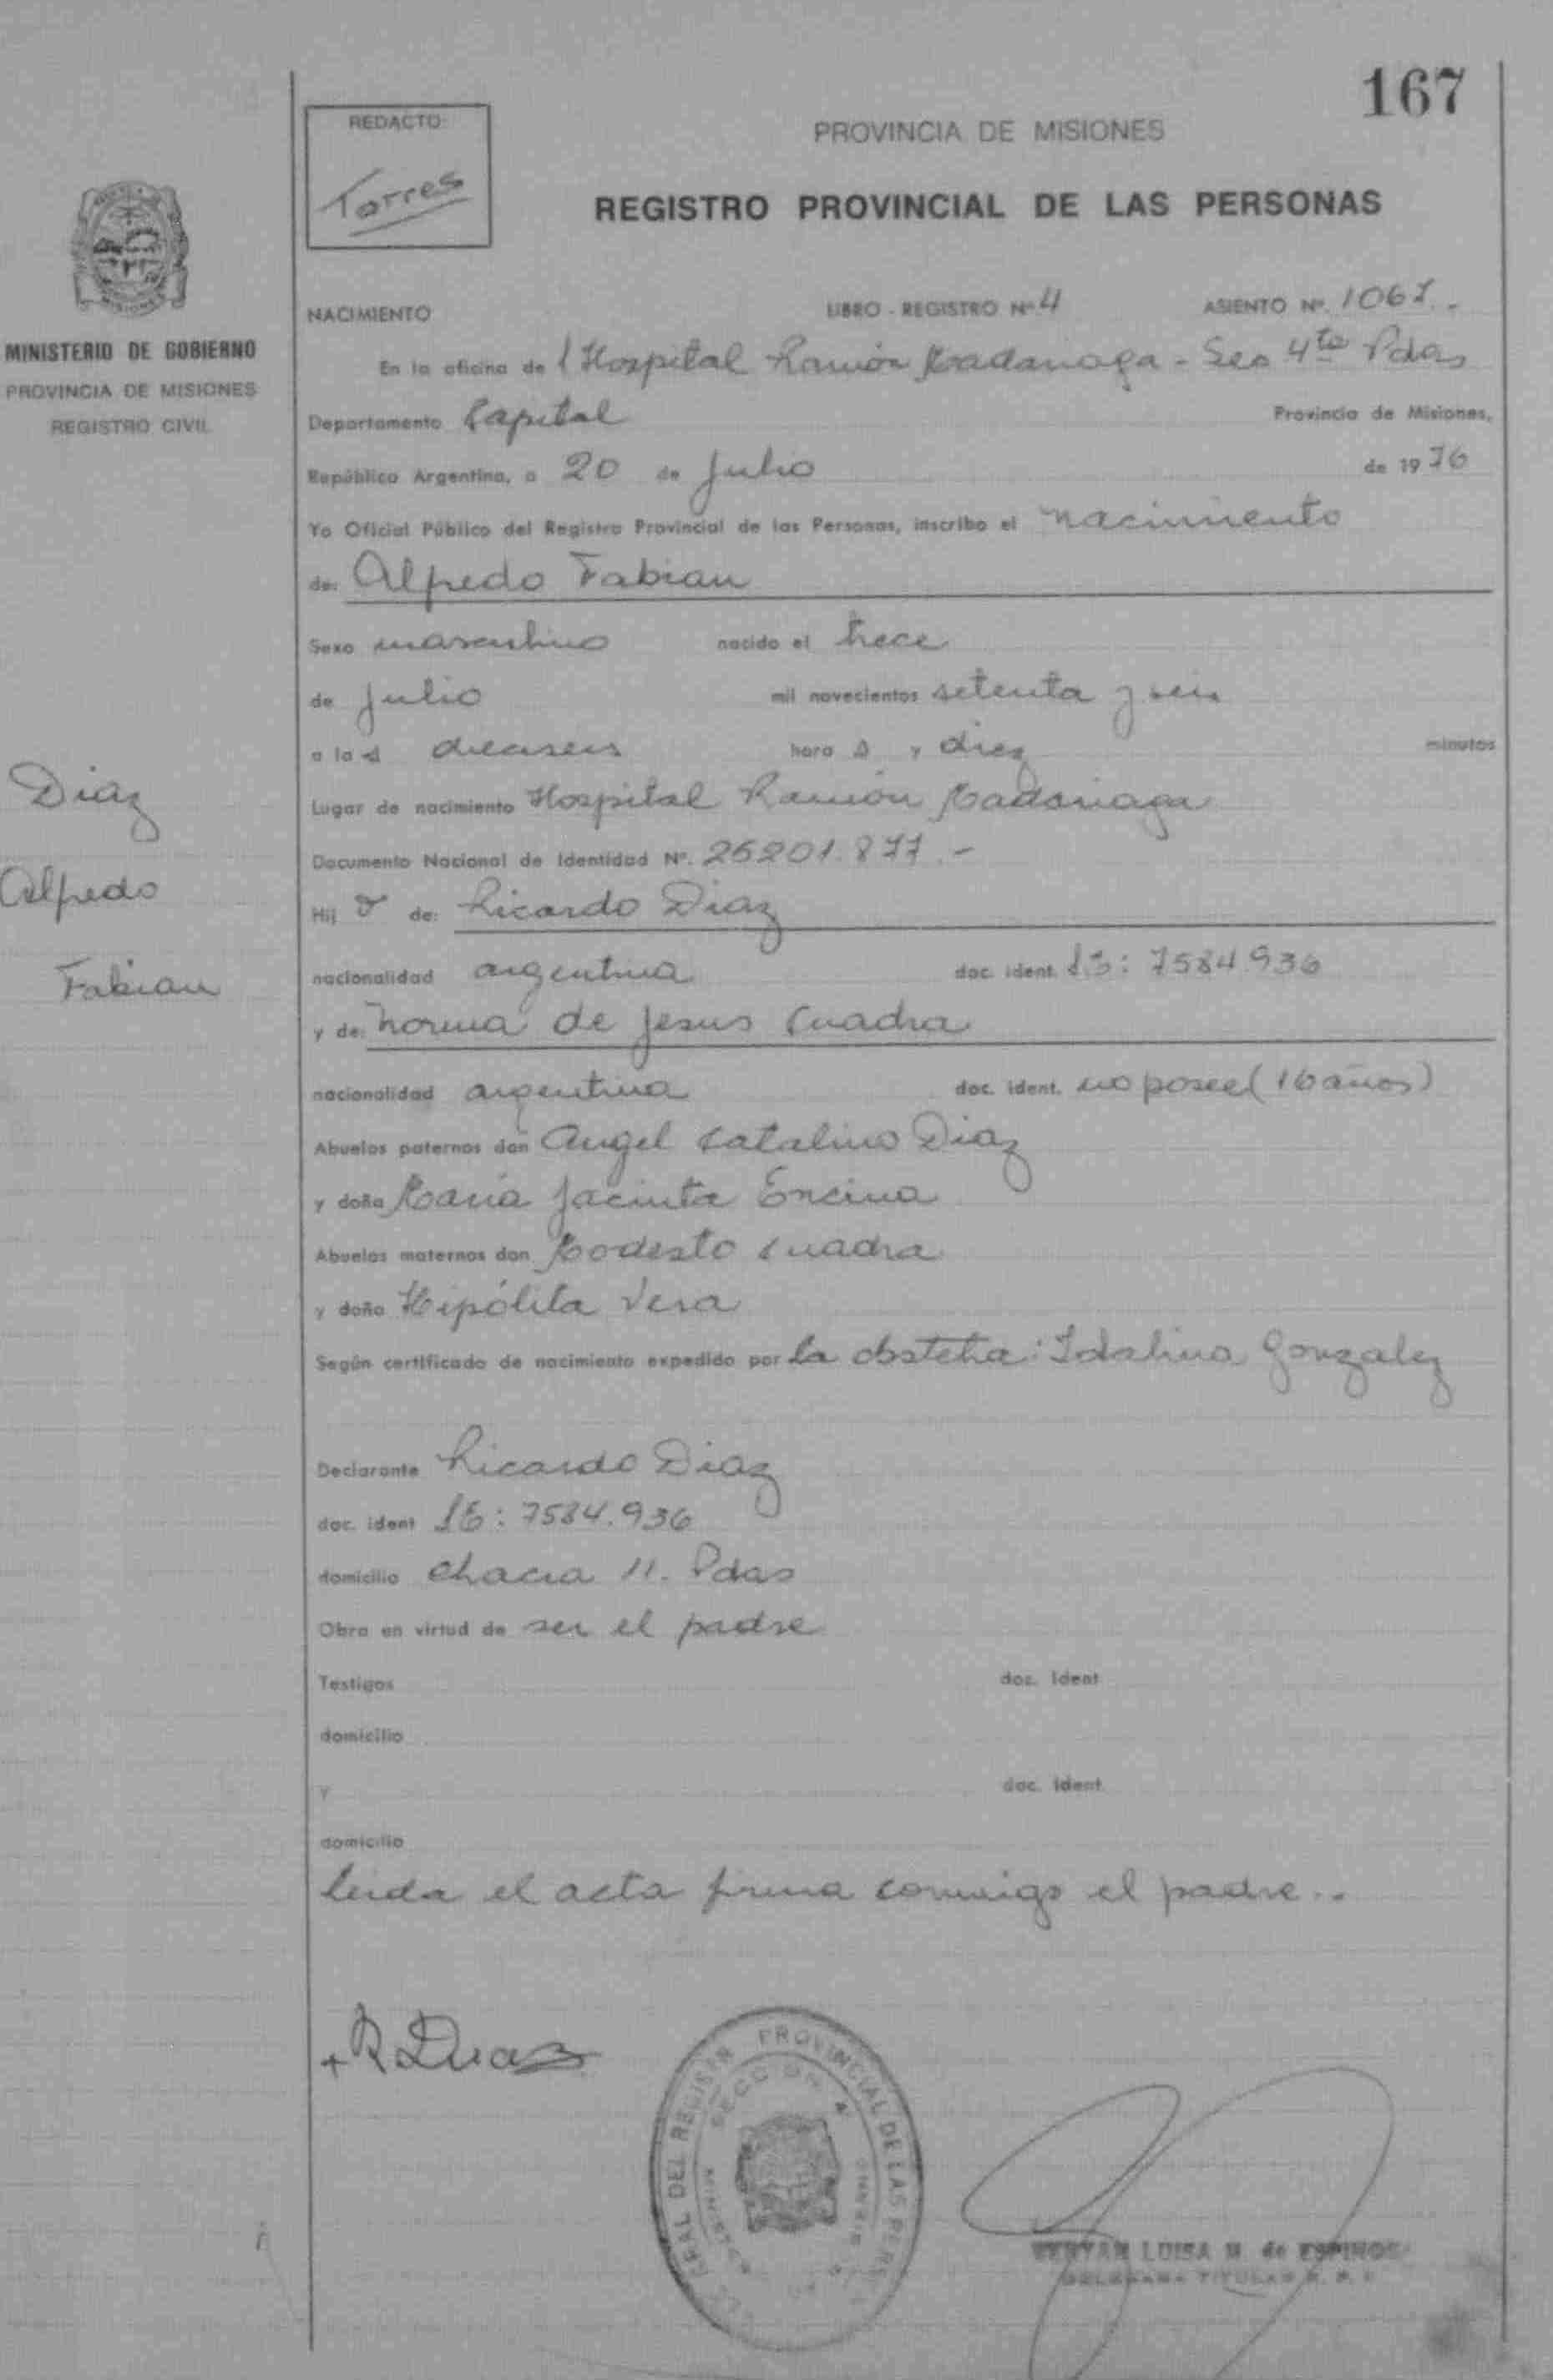 167
REDACTO:
Torres
PROVINCIA DE MISIONES
REGISTRO PROVINCIAL DE LAS PERSONAS
MINISTERIO DE GOBIERNO
PROVINCIA DE MISIONES
REGISTRO CIVIL
NACIMIENTO LIBRO - REGISTRO Nº 4 ASIENTO Nº. 1067.-
En la oficina de l Hospital Ramón Madariaga - Sec 4ta Pdas
Departamento Capital Provincia de Misiones,
República Argentina, a 20 de Julio de 1976
Yo Oficial Público del Registro Provincial de las Personas, inscribo el nacimiento
de: Alfredo Fabian
Sexo masculino nacido el trece
de julio mil novecientos setenta y seis
a las dieciseis horas y diez minutos
Lugar de nacimiento Hospital Ramón Madariaga
Documento Nacional de Identidad Nº. 25201.877.-
Hijo de: Ricardo Diaz
nacionalidad argentina doc. ident. LE: 7584.936
y de: Norma de Jesus Cuadra
nacionalidad argentina doc. ident. no posee (16 años)
Abuelos paternos don Angel Catalino Diaz
y doña Maria Jacinta Encina
Abuelos maternos don Modesto Cuadra
y doña Hipólita Vera
Según certificado de nacimiento expedido por la obstetra: Idalina Gonzalez
Declarante Ricardo Diaz
doc. ident LE: 7584.936
domicilio Chacra 11. Pdas
Obra en virtud de ser el padre
Testigos doc. Ident
domicilio
y doc. Ident
domicilio
Leida el acta firma conmigo el padre..
Diaz
Alfredo
Fabian
R Diaz
PROVINCIAL DE LAS
SECCION 4
LUISA M. de ESPINOS
TITULAR